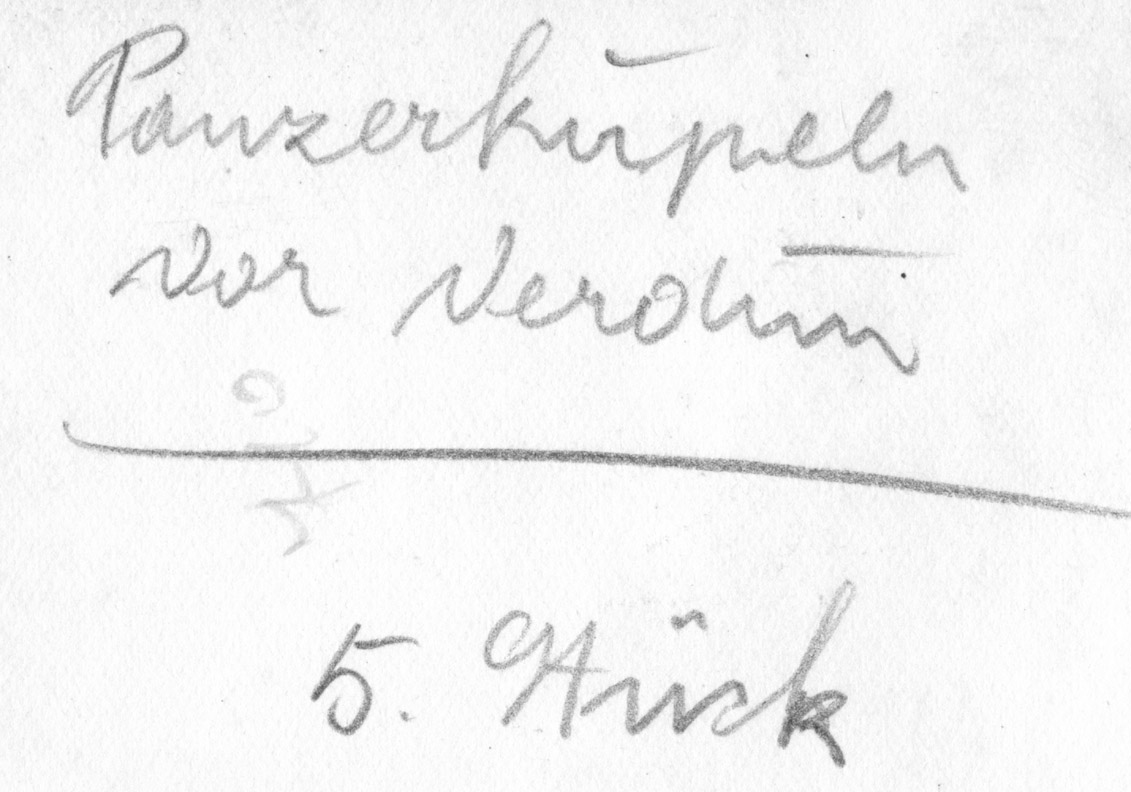 Panzerkupeln
vor Verdun
5. Stück